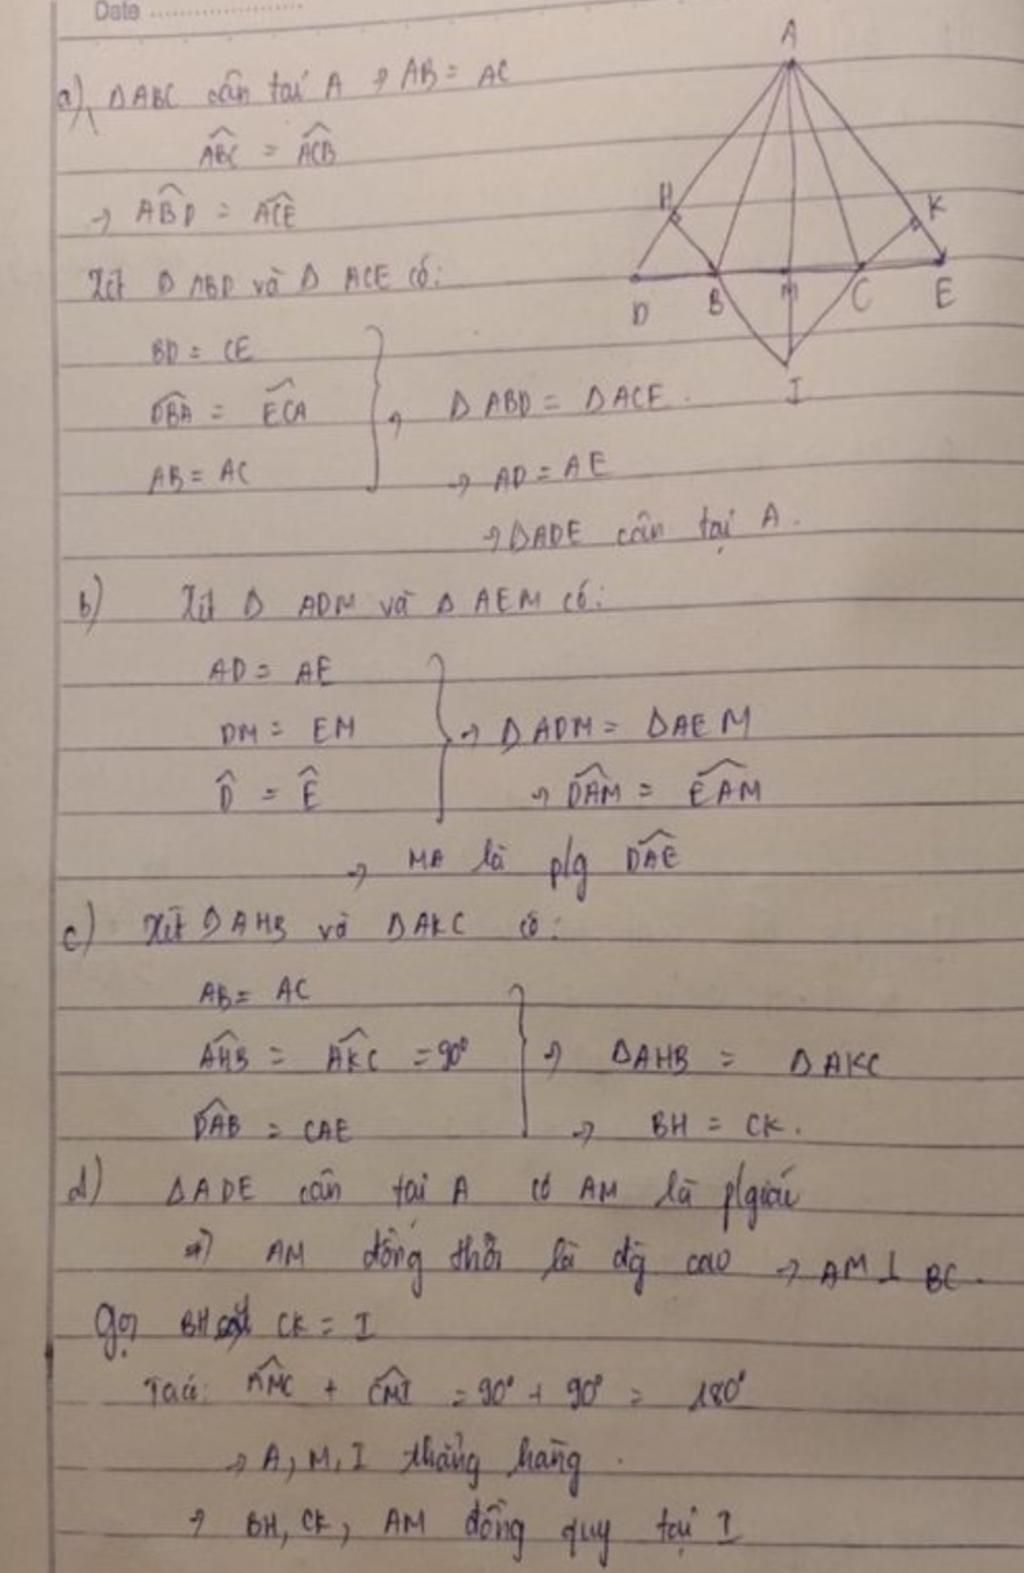 Date
a), ΔABC cân tại A → AB = AC
A
∠ABC = ∠ACB
→ ∠ABD = ∠ACE
H
K
Xét Δ ABD và Δ ACE có:
D B M C E
BD = CE
∠DBA = ∠ECA → Δ ABD = Δ ACE.
I
AB = AC → AD = AE
→ ΔADE cân tại A.
b) Xét Δ ADM và Δ AEM có:
AD = AE
DM = EM → Δ ADM = ΔAEM
D̂ = Ê → ∠DAM = ∠EAM
→ MA là p/g ∠DAE
c) Xét Δ AHB và Δ AKC có:
AB = AC
∠AHB = ∠AKC = 90° → ΔAHB = ΔAKC
∠DAB = CAE → BH = CK.
d) ΔADE cân tại A có AM là p/giác
→ AM đồng thời là đg cao → AM ⊥ BC.
Gọi BH cắt CK = I
Ta có: ∠AMC + ∠CMI = 90° + 90° = 180°
→ A, M, I thẳng hàng.
→ BH, CK, AM đồng quy tại I